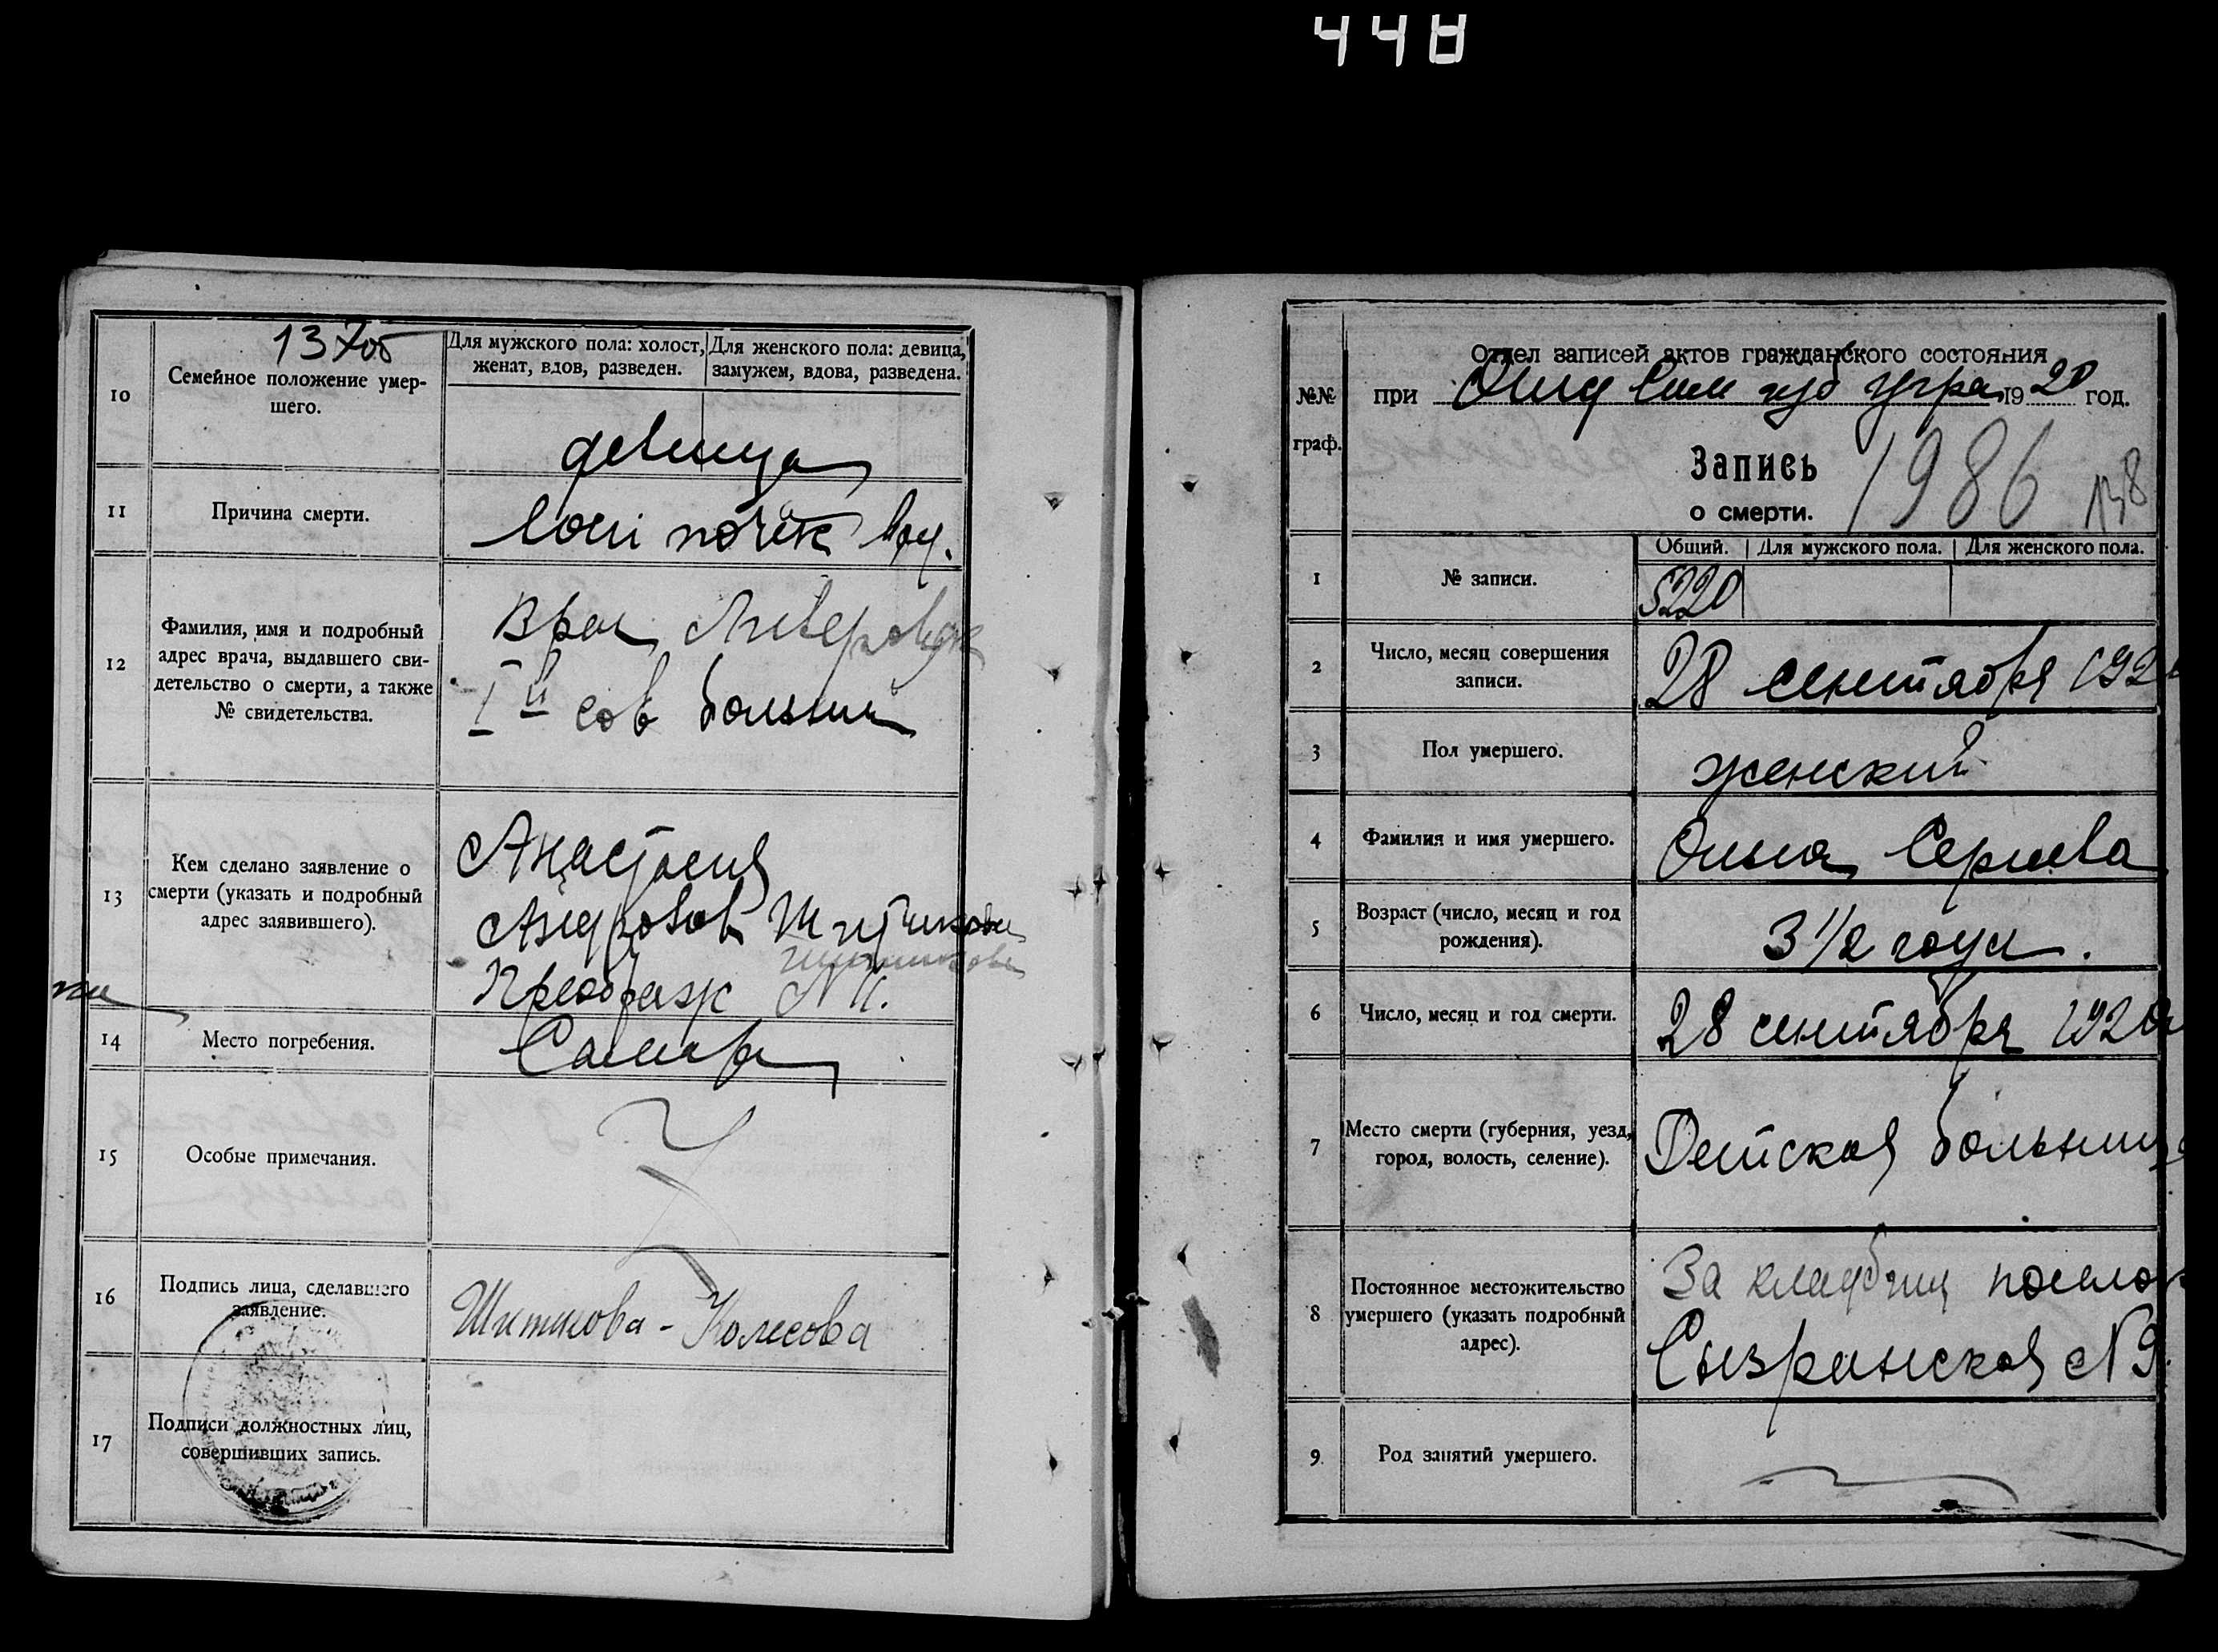 448
1370б
10
Семейное положение умер-
шего.
Для мужского пола: холост,
женат, вдов, разведен.
Для женского пола: девица,
замужем, вдова, разведена.
девица
11
Причина смерти.
почек
12
Фамилия, имя и подробный
адрес врача, выдавшего сви-
детельство о смерти, а также
№ свидетельства.
Врач
I й сов больниц
13
Кем сделано заявление о
смерти (указать и подробный
адрес заявившего).
Анастасия
Преображ №
14
Место погребения.
Самара
15
Особые примечания.
16
Подпись лица, сделавшего
заявление.
Шитикова - Колесова
17
Подписи должностных лиц,
совершивших запись.
№№
граф.
Отдел записей актов гражданского состояния
при Отд Сам губ упра 1920 год.
Запись 1986 138
о смерти.
Общий. Для мужского пола. Для женского пола.
1
№ записи.
5220
2
Число, месяц совершения
записи.
28 сентября 192
3
Пол умершего.
женский
4
Фамилия и имя умершего.
Ольга
5
Возраст (число, месяц и год
рождения).
3 1/2 года.
6
Число, месяц и год смерти.
28 сентября 1920
7
Место смерти (губерния, уезд,
город, волость, селение).
Детская больница
8
Постоянное местожительство
умершего (указать подробный
адрес).
За кладбищ поселок
Сызранская №9.
9
Род занятий умершего.